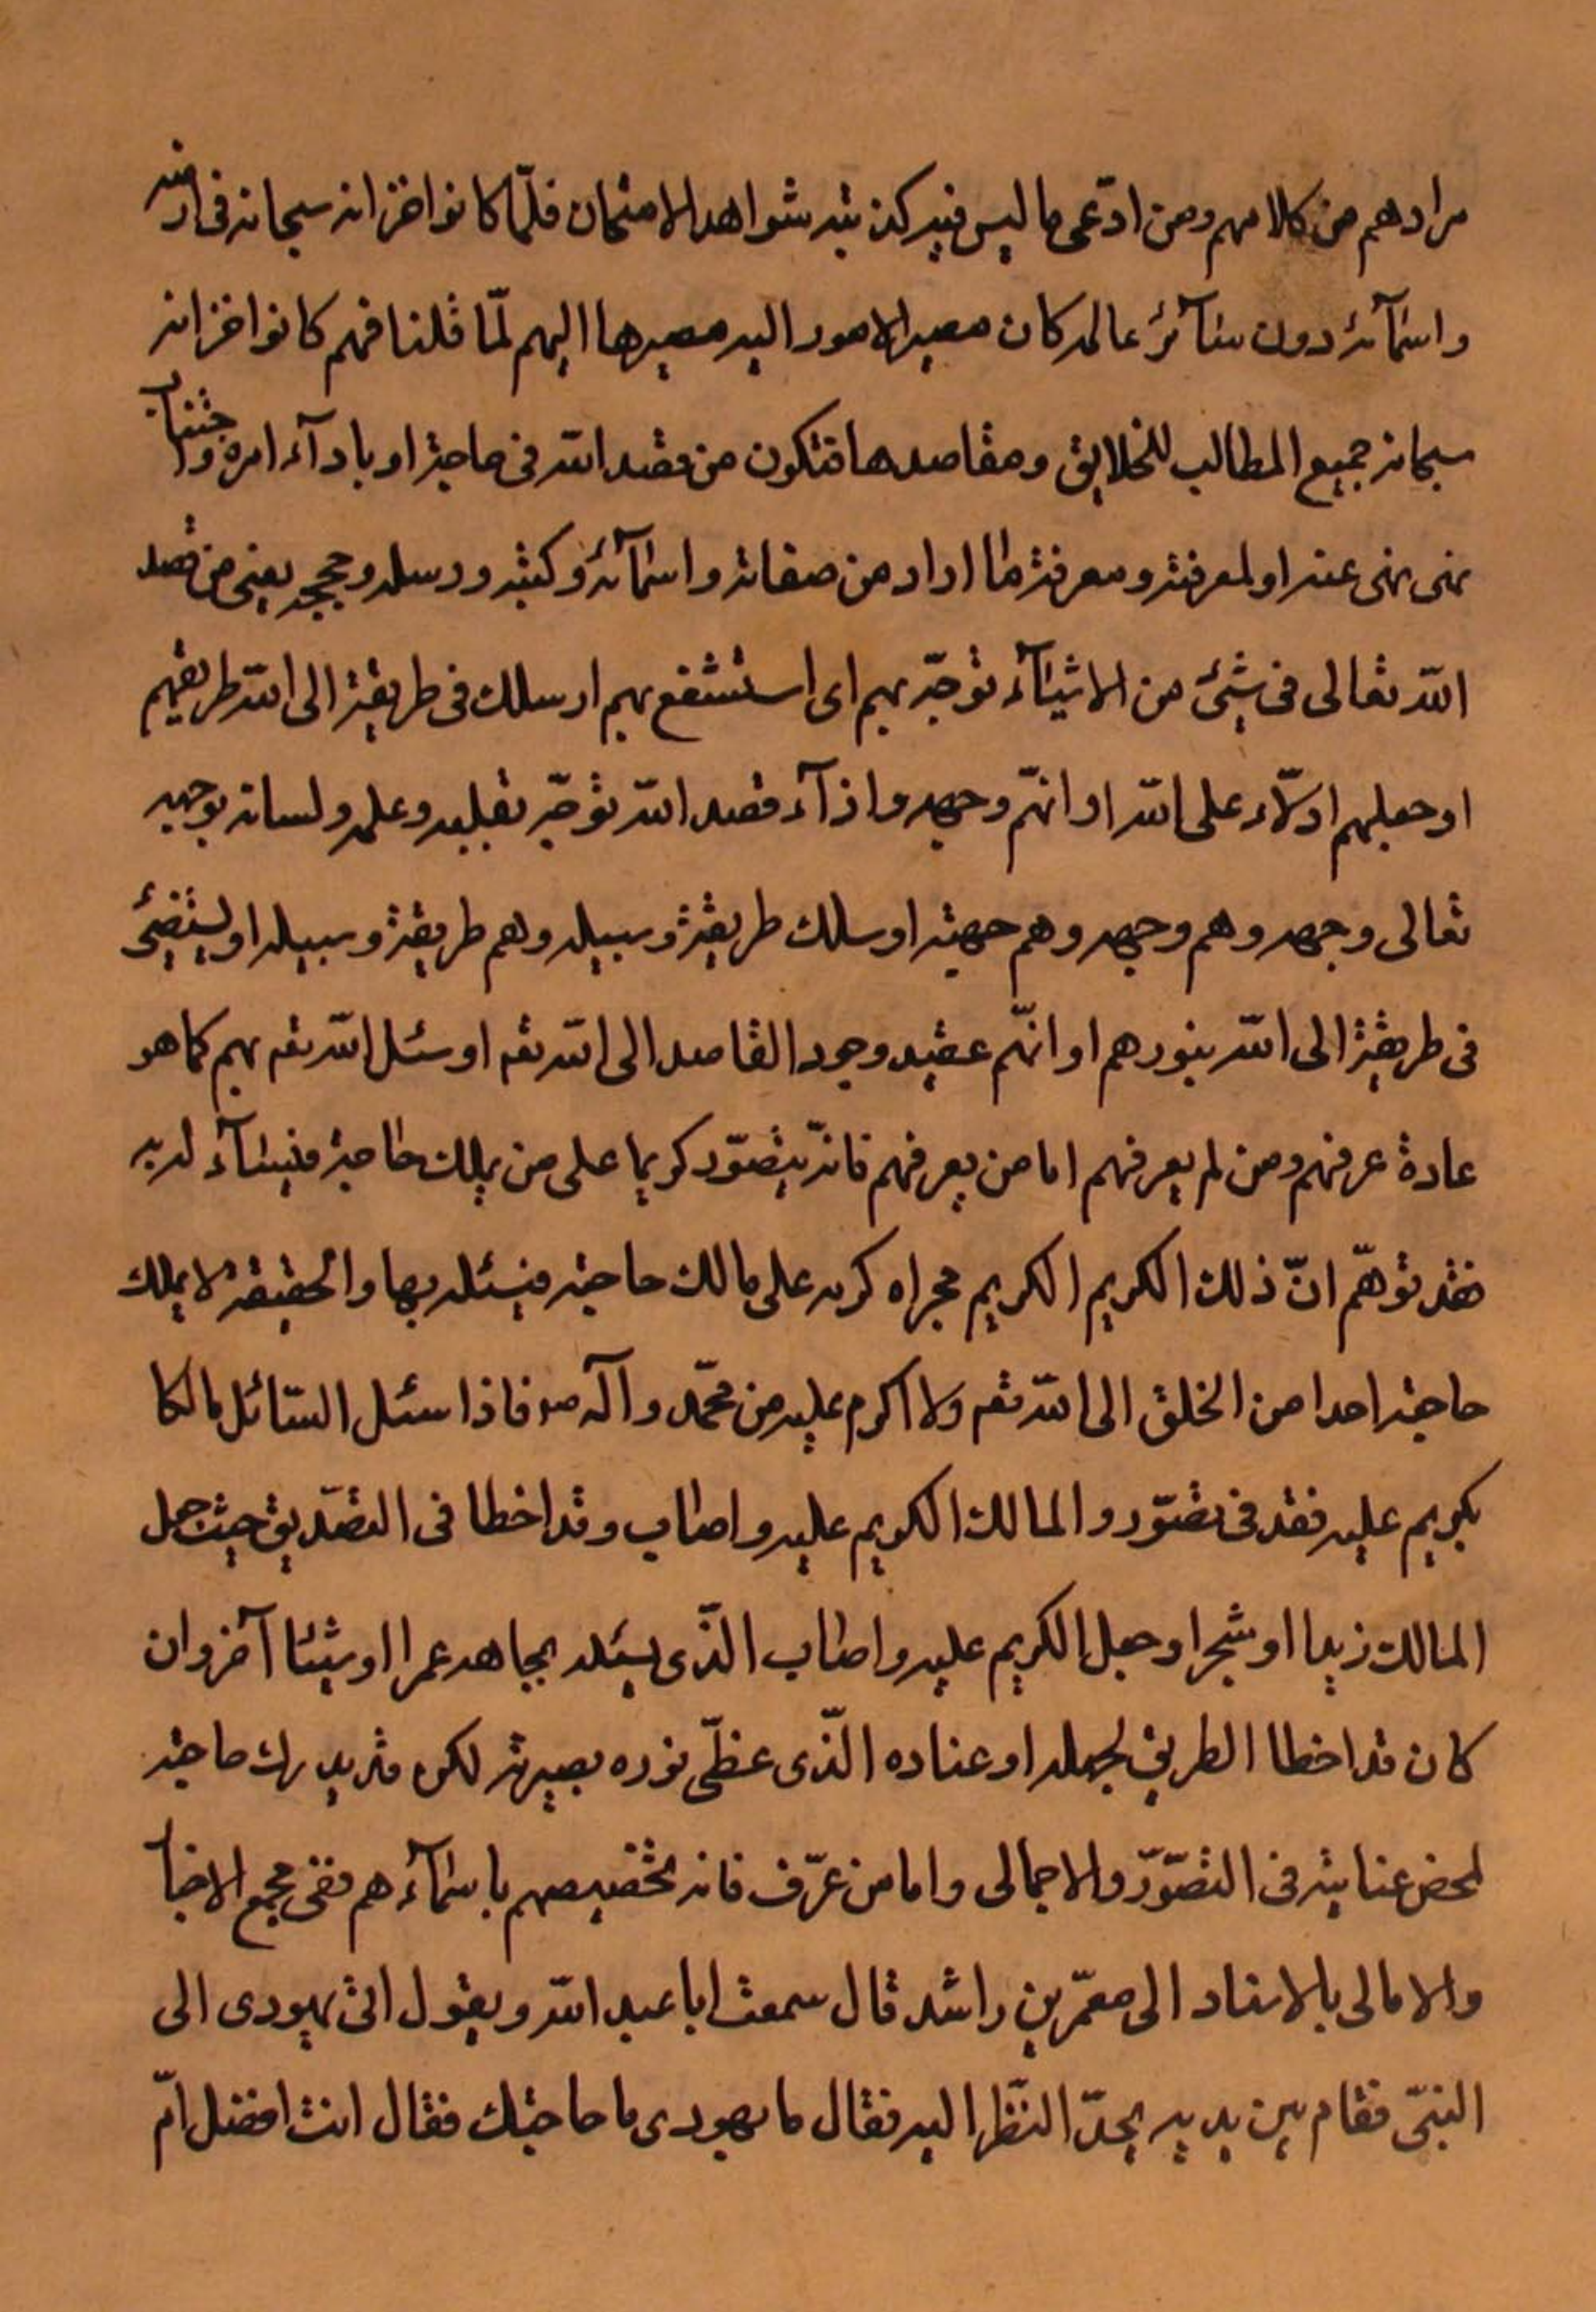 مرادهم من كلامهم ومن ادّعى ما ليس فيه كذبته شواهد الامتحان فلمّا كانوا خزانه سبحانه فى ارضه
واسمآئه دون سآئر عالمه كان مصير الامور اليه مصيرها اليهم لمّا قلنا فهم كانوا خزانه
سبحانه جميع المطالب للخلايق ومقاصدها فتكون من قصد الله فى حاجة او بادآء امره واجتناب
نهى نهى عنه او لمعرفته ومعرفة ما اراد من صفاته واسمآئه وكتبه ورسله وحججه يعنى من قصد
الله تعالى فى شئ من الاشيآء توجّه بهم اى استشفع بهم او سلك فى طريقة الى الله طريقهم
او جعلهم ادلّاء على الله او انهّم وجهه واذآء قصد الله توجّه بقلبه وعلمه ولسانه بوجهه
تعالى وجهه وهم وجهه وهم جهته او سلك طريقة وسبيله وهم طريقة وسبيله او ليستضئ
فى طريقة الى الله بنورهم او انهّم عقيد وجود القاصد الى الله تعه او سئل الله تعه بهم كما هو
عادة عرفهم ومن لم يعرفهم اما من يعرفهم فانّه يتصوّر كريما على من يملك حاجة فيسآء له به
فقد توهّم انّ ذلك الكريم الكريم مجراه كريم على مالك حاجته فيسئله بها والحقيقة لا يملك
حاجته احدا من الخلق الى الله تعه ولا اكرم عليه من محمّد وآله ص فاذا سئل السّائل مالكا
بكريم عليه فقد فى تصوّر والمالك الكريم عليه واصاب وقد اخطا فى التصّديق حيث جعل
المالك زيدا او شجرا وجعل الكريم عليه واصاب الذّى يسئله بجاهه عمرا او شيئا آخر وان
كان قد اخطا الطريق لجهله او عناده الذّى غطّى نوره بصيرته لكن قد يدرك حاجته
لمحض عنايته فى التصوّر والاجمالى واما من عرّف فانه تخصيصهم باسمآءهم ففى مجمع الاخبار
والامالى بالاسناد الى معمّر بن راشد قال سمعت ابا عبد الله ويقول اتى يهودى الى
النبىّ فقام بين يديه يحدّ النّظر اليه فقال ما يهودى ما حاجتك فقال انت افضل امّ